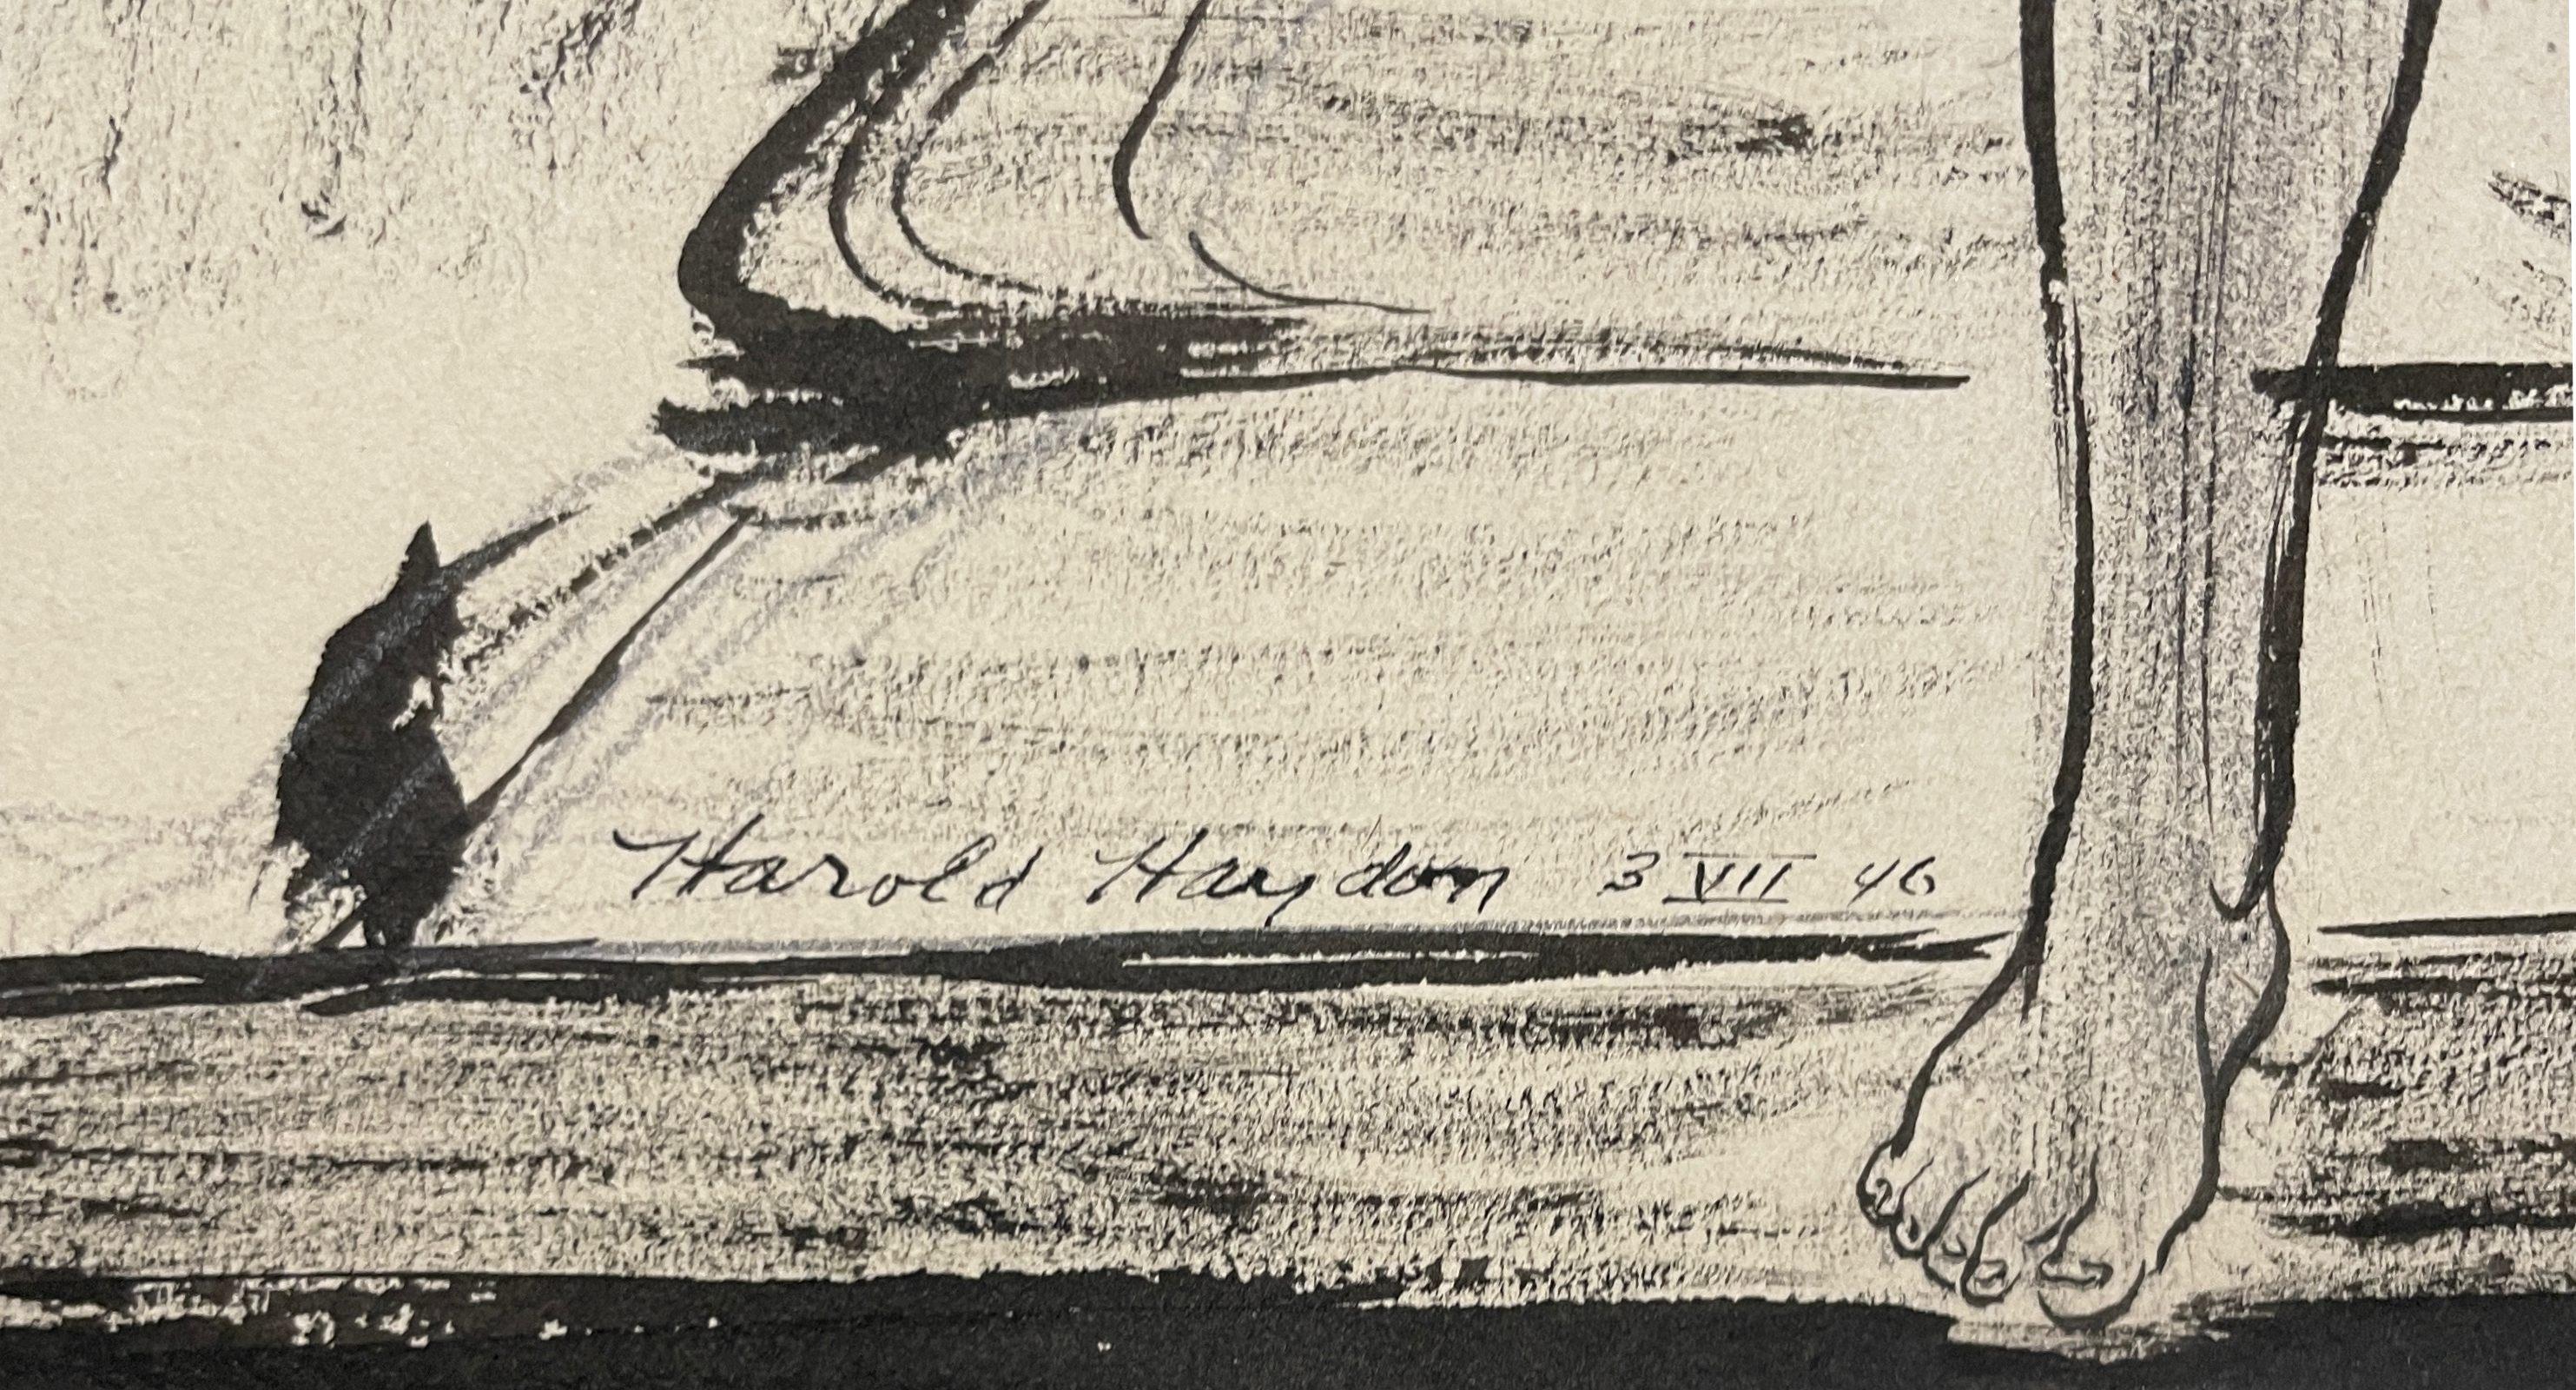 Harold Haydon 3 VII 46